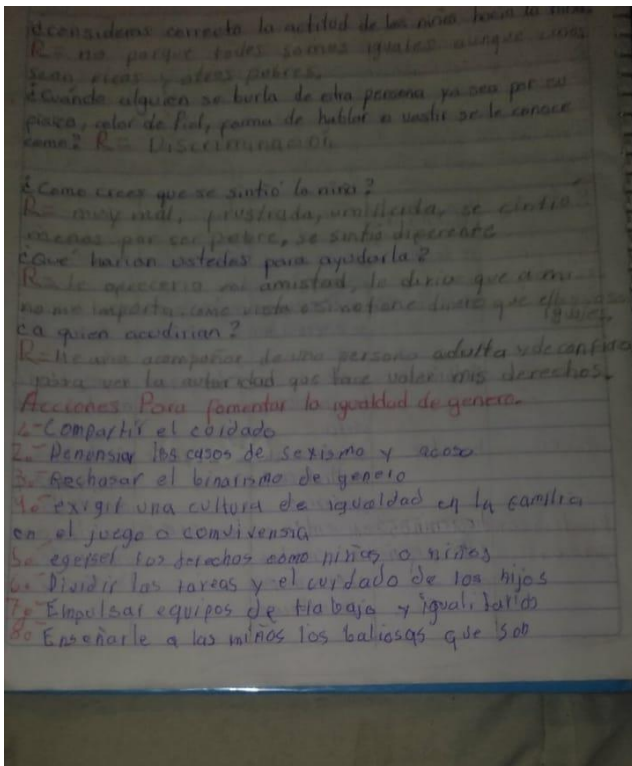 ¿consideras correcta la actitud de los niños hacia la
R= no porque todos somos iguales aunque unos
sean ricos y otros pobres.
¿Cuándo alguien se burla de otra persona ya sea por su
física, color de Piel, forma de hablar o vestir se le conoce
como? R= Discriminación
¿Como crees que se sintió la niña?
R= muy mal, frustrada, umillada, se cintió
menos por ser pobre, se sintió diferente
¿Qué harian ustedes para ayudarla?
R= le ofreceria mi amistad, le diria que a mi
no me importa como vista o si no tiene dinero que
iguales.
¿a quien acudirian?
R= acompañar de una persona adulta y de confi
para ver la autoridad que hace valer mis derechos.
Acciones Para fomentar la igualdad de genero.
1.- Compartir el coidado
2.- Denensiar los casos de sexismo y acoso
3.- Rechasar el binarismo de genero
4.- exigir una cultura de igualdad en la familia
en el juego o comvivensia
5.- egersel sos derechos como niñas o niños
6.- Dividir las tareas y el cuidado de los hijos
7.- Empulsar equipos de trabajo y igualitario
8.- Enseñarle a las miños los baliosas que son